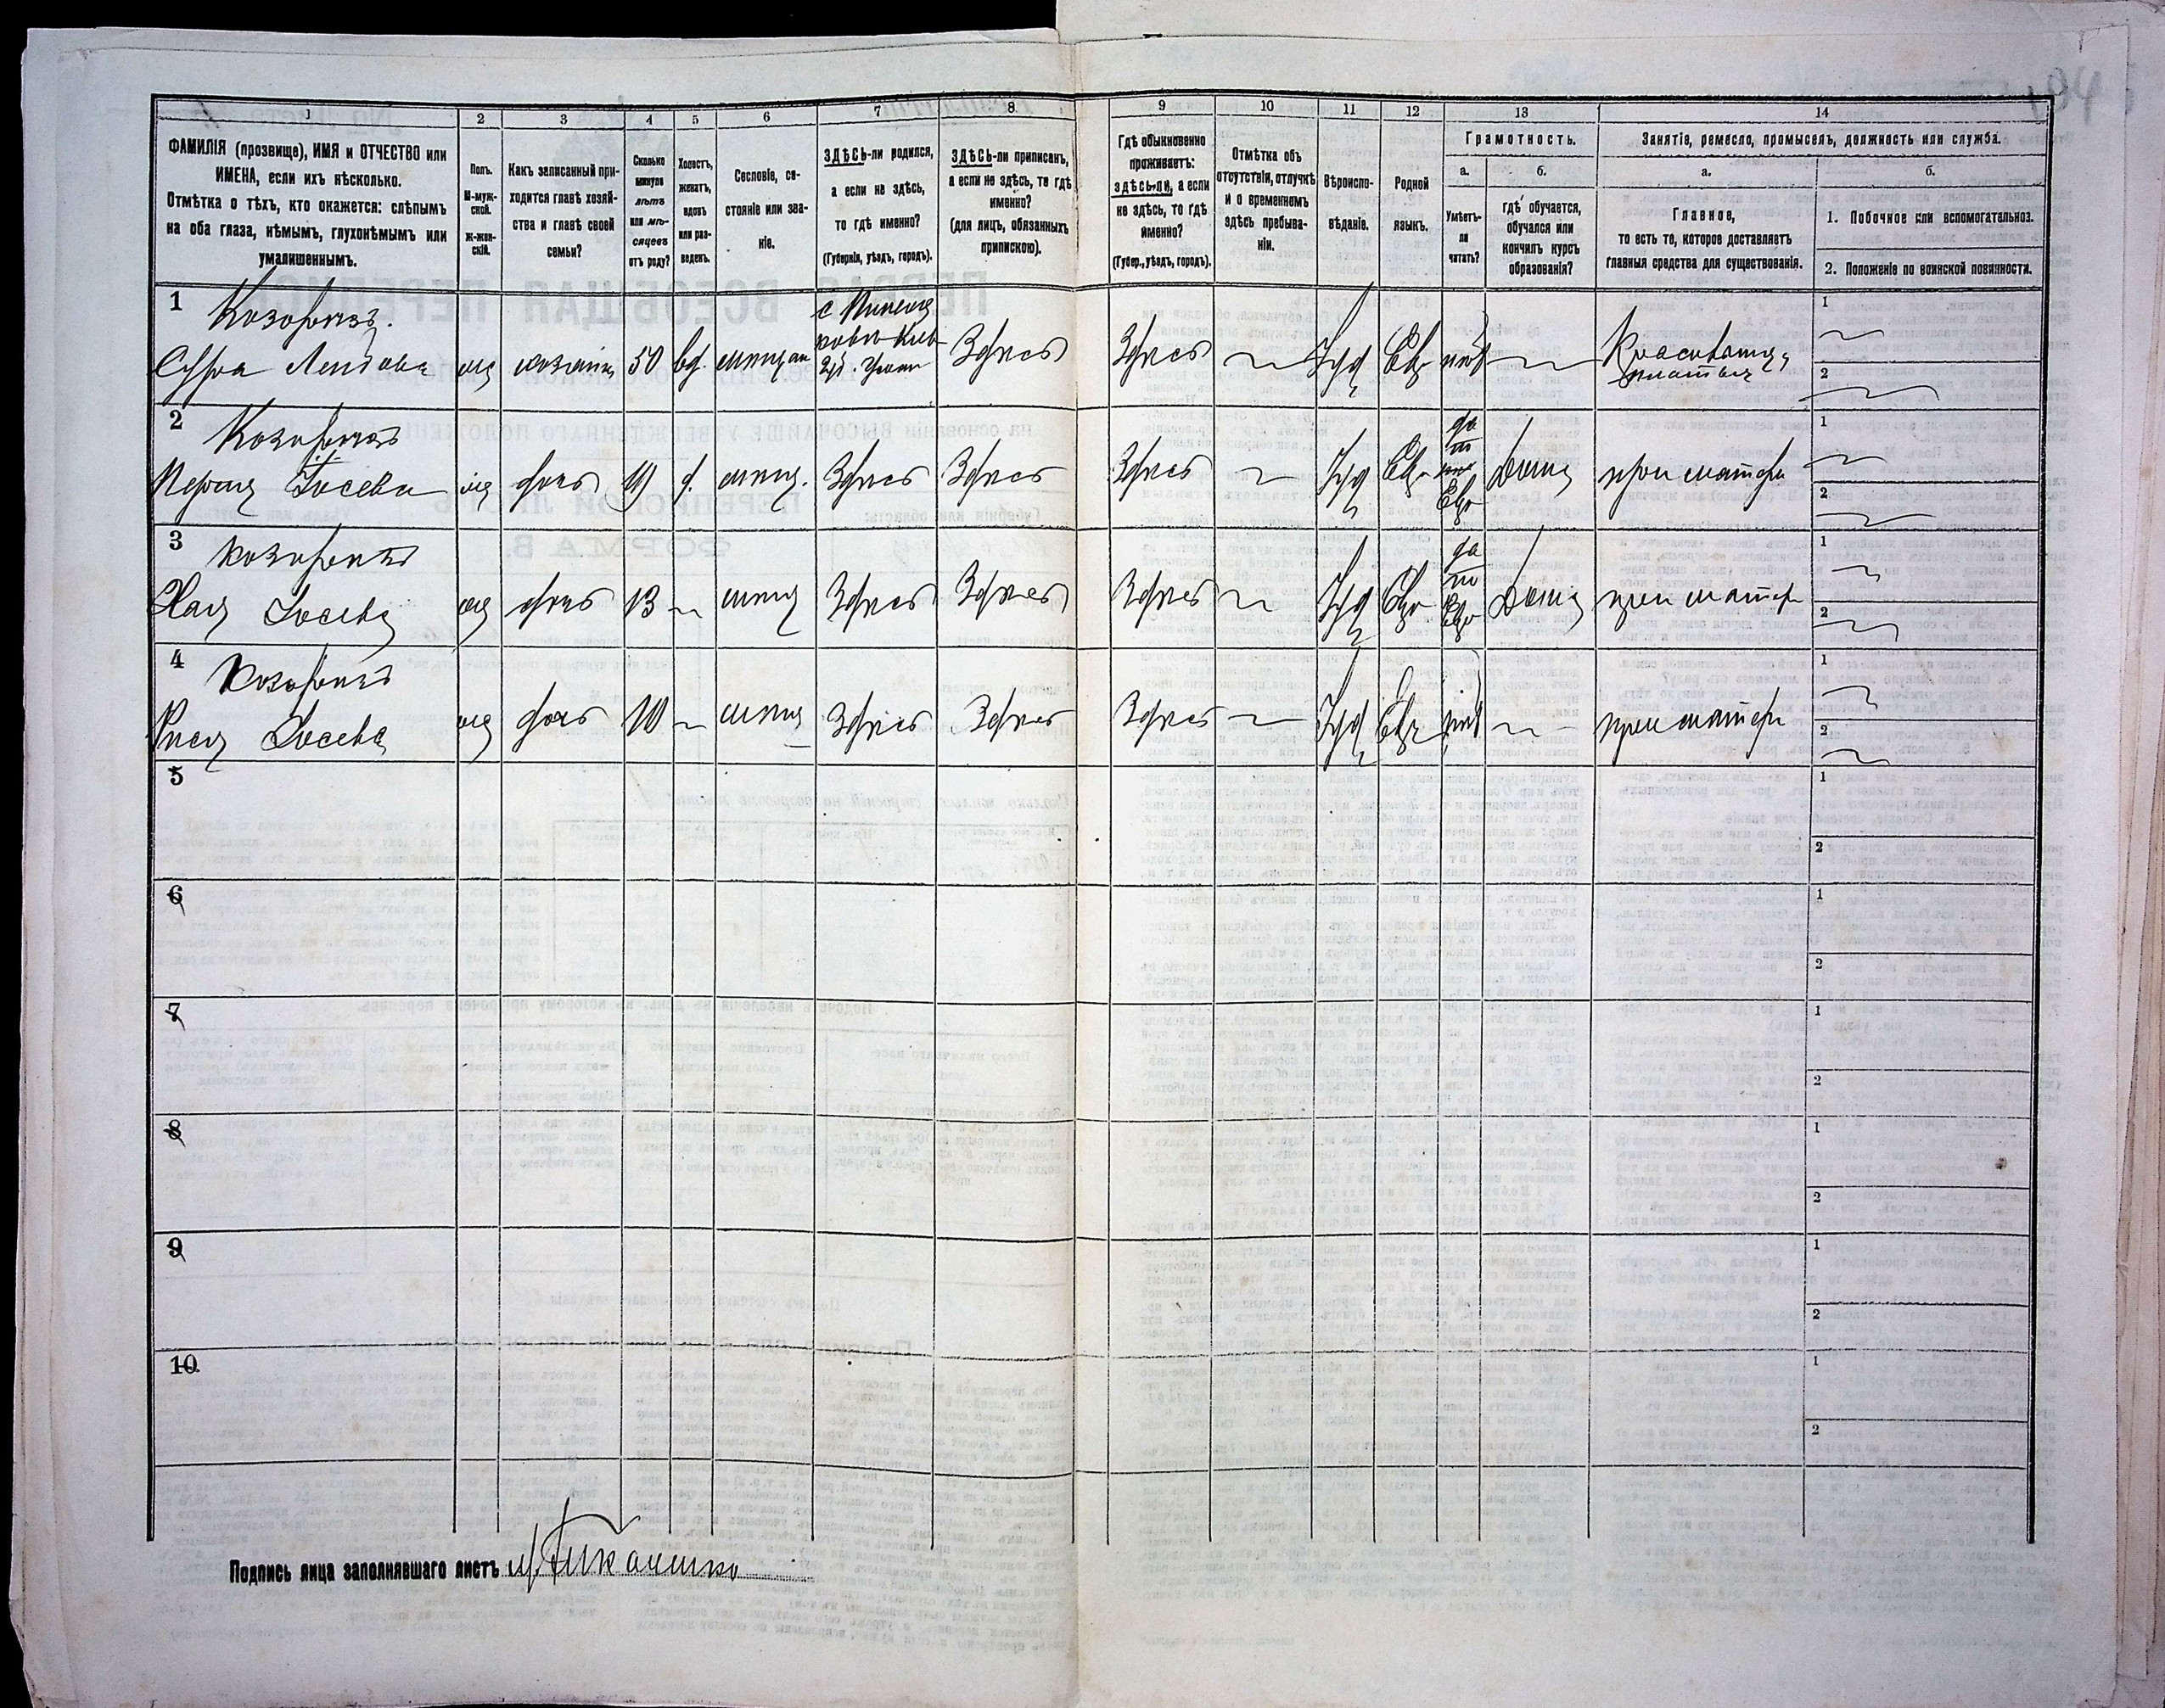 1 2 3 4 5 6 7 8. 9 10 11 12 13 14
ФАМИЛІЯ (прозвище), ИМЯ и ОТЧЕСТВО или
ИМЕНА, если ихъ нѣсколько.
Отмѣтка о тѣхъ, кто окажется: слѣпымъ
на оба глаза, нѣмымъ, глухонѣмымъ или
умалишеннымъ.
Полъ.
М-муж-
ской.
Ж-жен-
скій.
Какъ записанный при-
ходится главѣ хозяй-
ства и главѣ своей
семьи?
Сколько
минуло
лѣтъ
или мѣ-
сяцевъ
отъ роду?
Холостъ,
женатъ,
вдовъ
или раз-
веденъ.
Сословіе, со-
стояніе или зва-
ніе.
ЗДѢСЬ-ли родился,
а если не здѣсь,
то гдѣ именно?
(Губернія, уѣздъ, городъ).
ЗДѢСЬ-ли приписанъ,
а если не здѣсь, то гдѣ
именно?
(для лицъ, обязанныхъ
припискою).
Гдѣ обыкновенно
проживаетъ:
здѣсь-ли, а если
не здѣсь, то гдѣ
именно?
(Губер., уѣздъ, городъ).
Отмѣтка объ
отсутствіи, отлучкѣ
и о временномъ
здѣсь пребыва-
ніи.
Вѣроиспо-
вѣданіе.
Родной
языкъ.
Грамотность.
а.
Умѣетъ-
ли
читать?
б.
гдѣ обучается,
обучался или
кончилъ курсъ
образованія?
Занятіе, ремесло, промыселъ, должность или служба.
а.
Главное,
то есть то, которое доставляетъ
главныя средства для существованія.
б.
1. Побочное или вспомогательное.
2. Положеніе по воинской повинности.
1
Сура
50 вд. Здѣсь Здѣсь Іуд Евр нѣтъ
1
2
2
Іосева дочь 19 д. мѣщ. Здѣсь Здѣсь Здѣсь Іуд Евр да Дома при матери
1
2
3
Хая Іосева дочь 13 мѣщ Здѣсь Здѣсь Здѣсь Іуд Евр да Дома при матери
1
2
4
Іосева дочь 10 мѣщ Здѣсь Здѣсь Здѣсь Іуд Евр нѣтъ при матери
1
2
5
1
2
6
1
2
7
1
2
8
1
2
9
1
2
10
1
2
Подпись лица заполнявшаго листъ